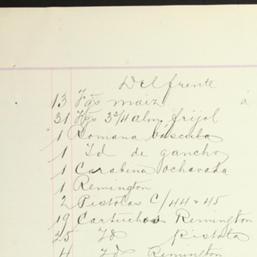 Del frente
13 Fgs maiz a
31 Fgs 3 3/4 alm. frijol
1 Romana bascula
1 Id de gancho
1 Carabina ochavada
1 Remington
2 Pistolas C/44 y 45
19 Cartuchos Remington
25 Id Pistola
4 Id Remington